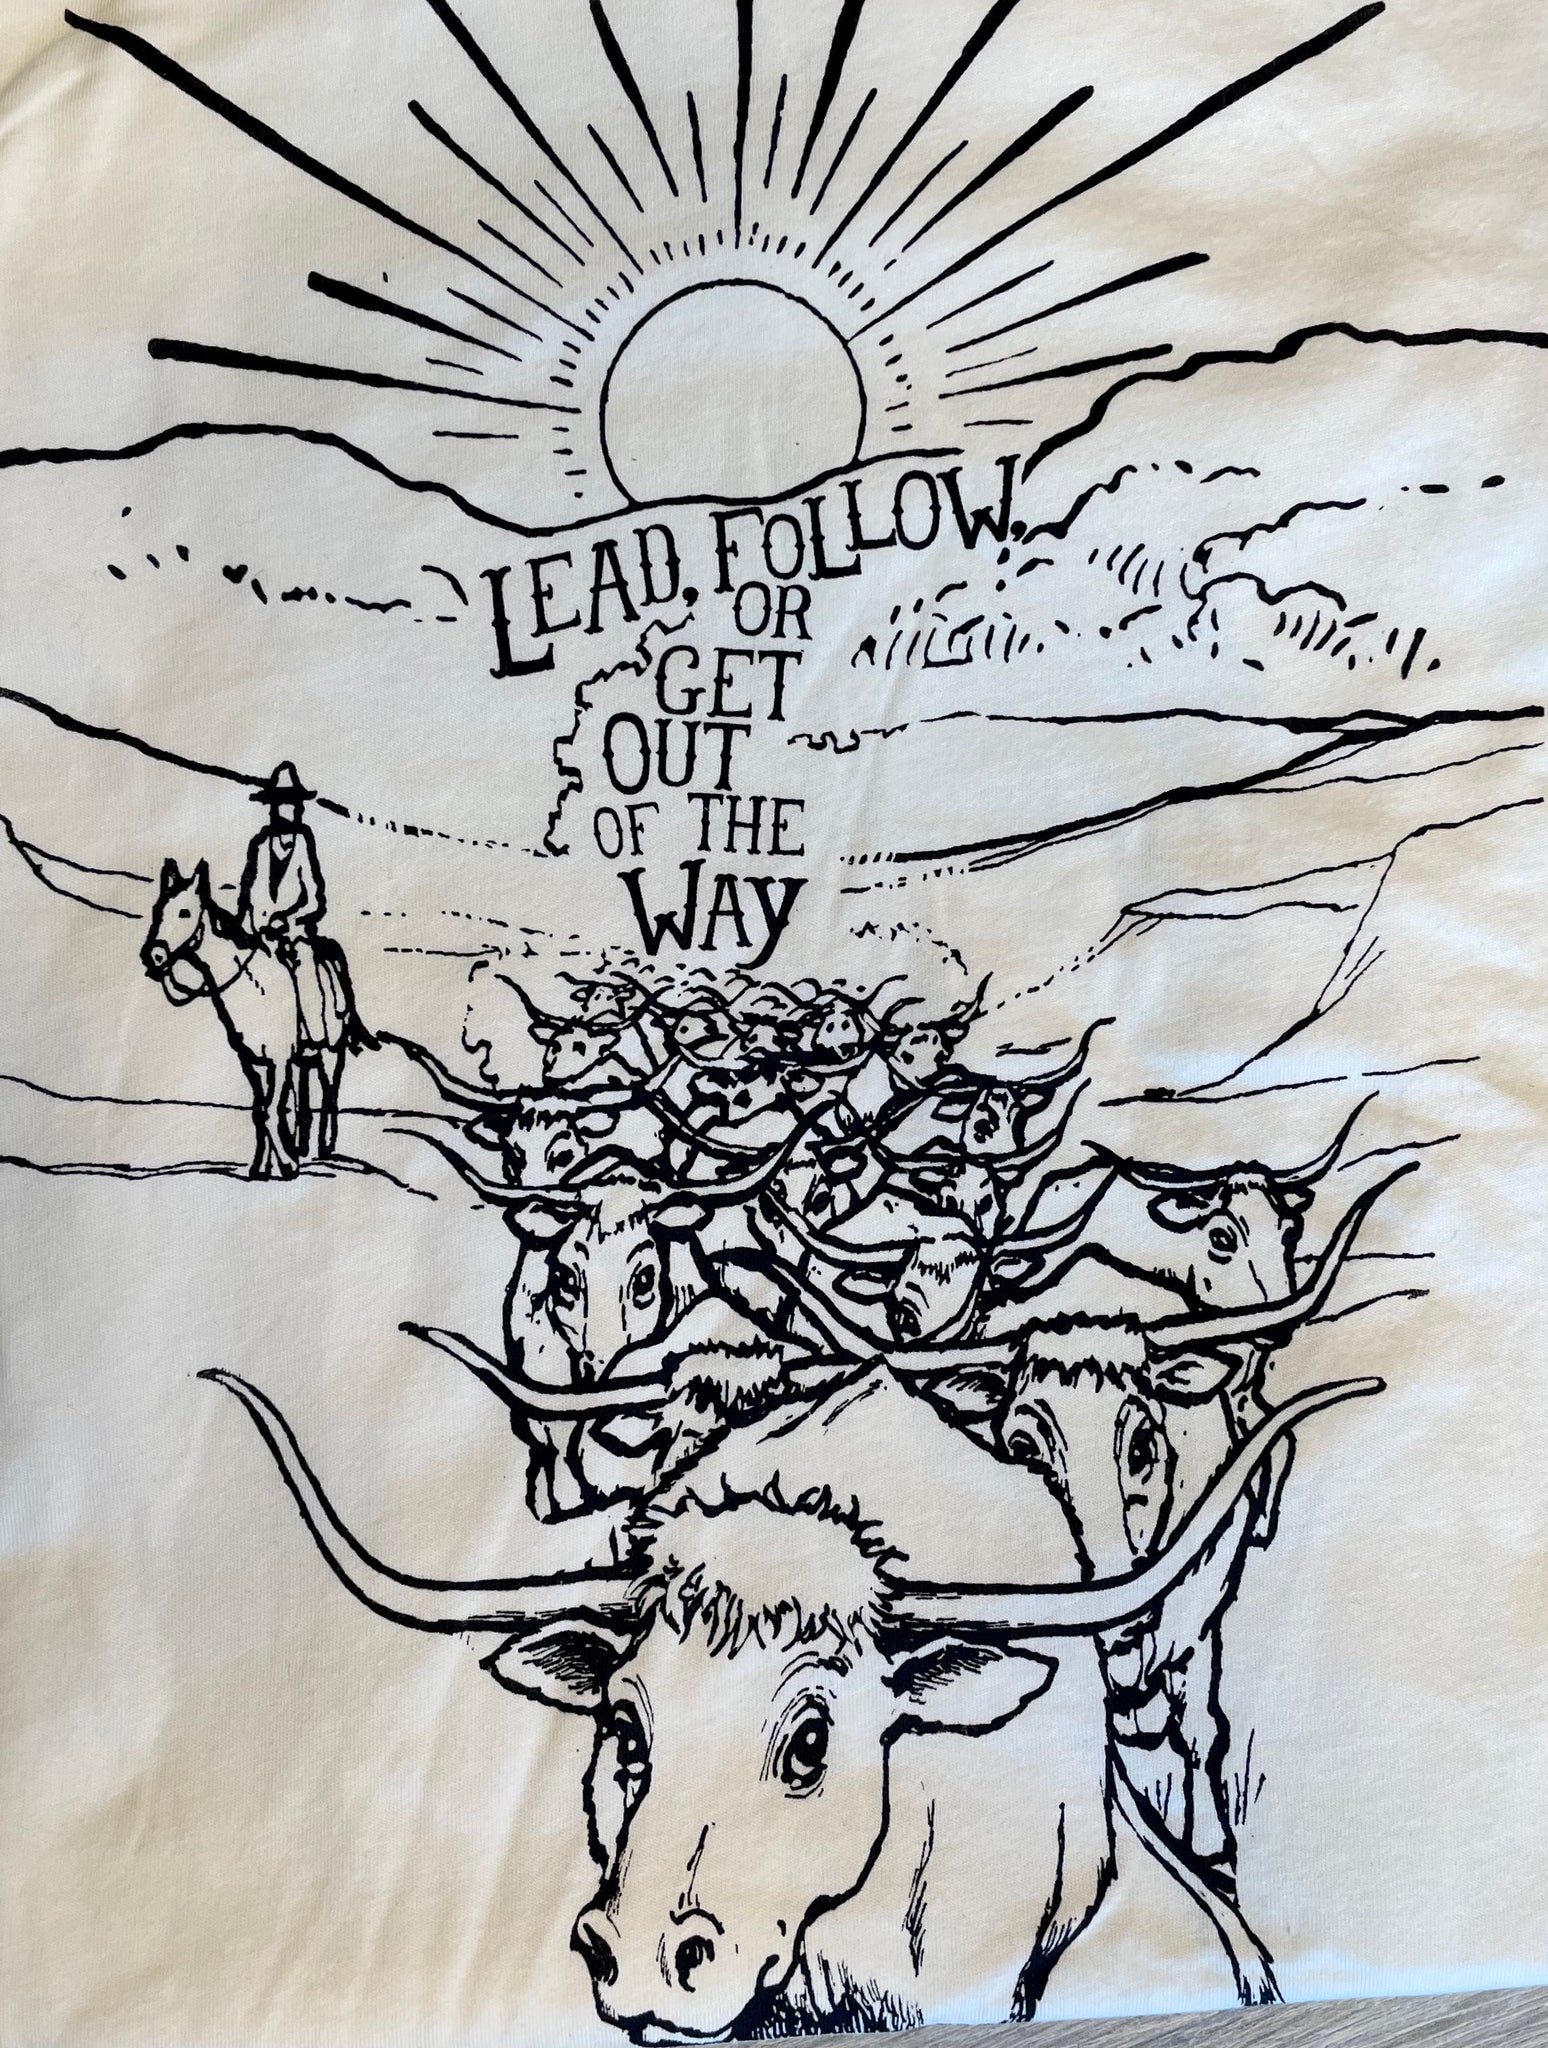 LEAD, FOLLOW,
OR
GET
OUT
OF THE
WAY